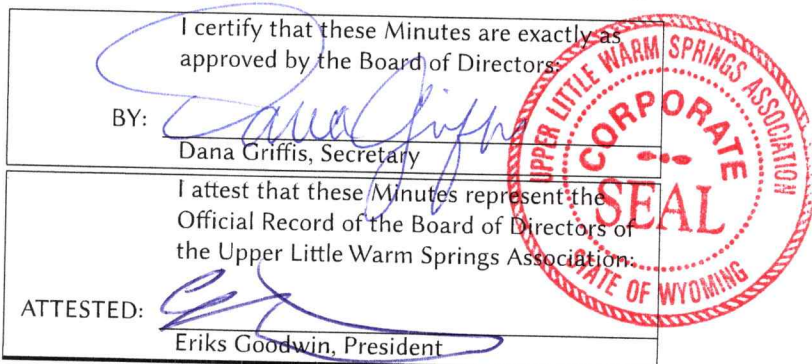 I certify that these Minutes are exactly as
approved by the Board of Directors:
BY:
Dana Griffis
Dana Griffis, Secretary
I attest that these Minutes represent the
Official Record of the Board of Directors of
the Upper Little Warm Springs Association:
ATTESTED:
Eriks Goodwin, President
UPPER LITTLE WARM SPRINGS ASSOCIATION
CORPORATE
SEAL
STATE OF WYOMING